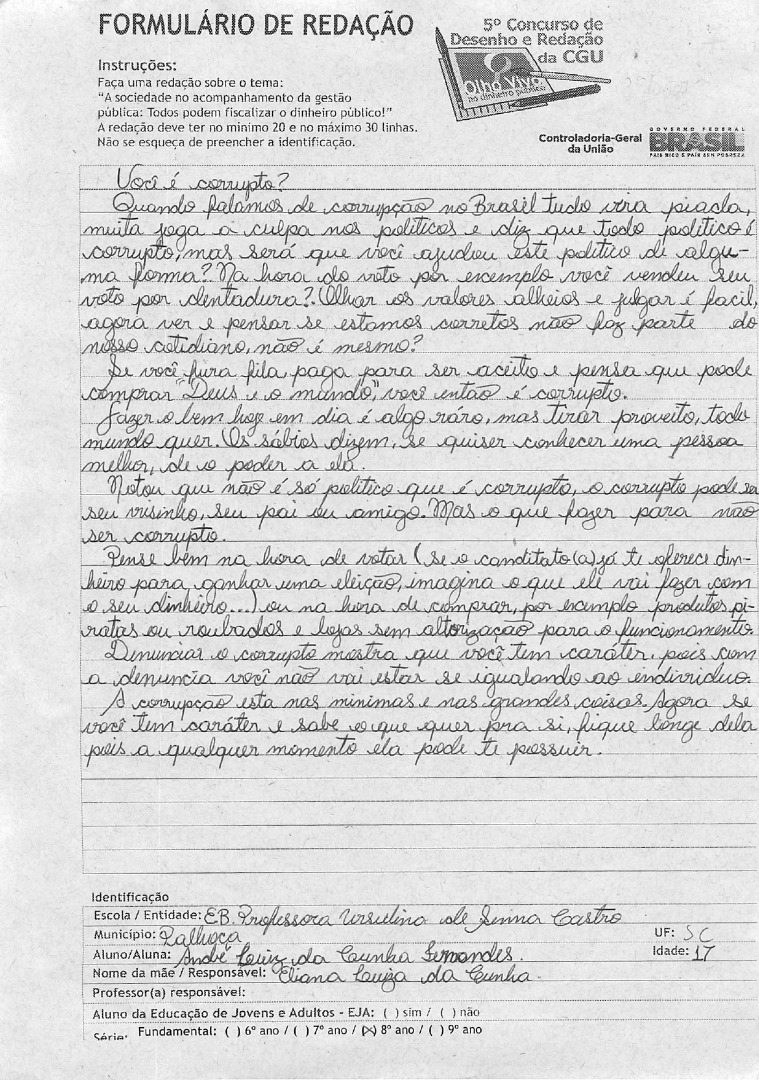 FORMULÁRIO DE REDAÇÃO
5º Concurso de
Desenho e Redação
da CGU
Olho Vivo
no dinheiro público
Instruções:
Faça uma redação sobre o tema:
"A sociedade no acompanhamento da gestão
pública: Todos podem fiscalizar o dinheiro público!"
A redação deve ter no mínimo 20 e no máximo 30 linhas.
Não se esqueça de preencher a identificação.
Controladoria-Geral
da União
GOVERNO FEDERAL
BRASIL
PAÍS RICO É PAÍS SEM POBREZA
Você é corrupto?
Quando falamos de corrupção no Brasil tudo vira piada,
muita joga a culpa nos políticos e diz que todo político é
corrupto, mas será que você ajudou este político de algu-
ma forma? Na hora do voto por exemplo você vendeu seu
voto por dentadura?. Olhar os valores alheios e julgar é facil,
agora ver e pensar se estamos corretos não faz parte do
nosso cotidiano, não é mesmo?
Se você fura fila paga para ser aceito e pensa que pode
comprar "Deus e o mundo," você então é corrupto.
Fazer o bem hoje em dia é algo ráro, mas tirar proveito, todo
mundo quer. Os sábios dizem, se quiser conhecer uma pessoa
melhor, de o poder a ela.
Notou que não é só político que é corrupto, o corrupto pode ser
seu visinho, seu pai ou amigo. Mas o que fazer para não
ser corrupto.
Pense bem na hora de votar (se o canditato(a) já te oferece din-
heiro para ganhar uma eleição, imagina o que ele vai fazer com
o seu dinheiro...) ou na hora de comprar, por exemplo produtos pi-
ratas ou roubados e lojas sem altorização para o funcionamento.
Denunciar o corrupto mostra que você tem caráter, pois com
a denuncia você não vai estar se igualando ao endivriduo.
A corrupção esta nas minimas e nas grandes coisas. Agora se
você tem caráter e sabe o que quer pra si, fique longe dela
pois a qualquer momento ela pode te possuir.
Identificação
Escola / Entidade: EB. Professora Ursulina de Senna Castro
Município: Palhoça UF: SC
Aluno/Aluna: André Luiz da Cunha Fernandes. Idade: 17
Nome da mãe / Responsável: Eliana Luiza da Cunha.
Professor(a) responsável:
Aluno da Educação de Jovens e Adultos - EJA: ( ) sim / ( ) não
Série: Fundamental: ( ) 6º ano / ( ) 7º ano / (X) 8º ano / ( ) 9º ano